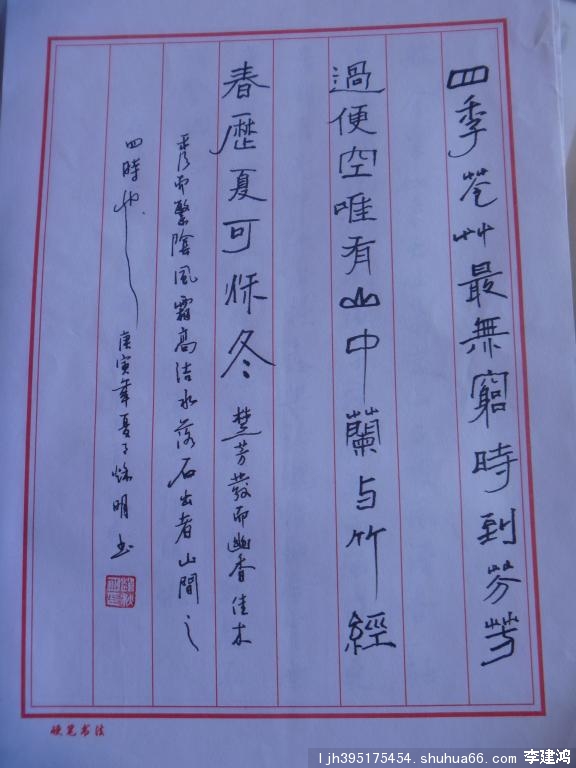 四季芲艸最無窮時到芬芳
過便空唯有山中蘭与竹經
春歷夏可秌冬 埜芳發而幽香佳木
秀而繁陰風霜高洁水落石出者山間之
四時也 庚寅年夏 秌明书
硬笔书法
ljh395175454.shuhua66.com 李建鸿